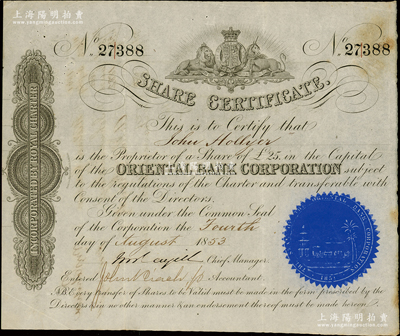 上海阳明拍卖
No 27388
No 27388
SHARE CERTIFICATE.
This is to Certify that
John Hollyer
is the Proprietor of a Share of £25, in the Capital
of the ORIENTAL BANK CORPORATION subject
to the regulations of the Charter and transferable with
Consent of the Directors.
Given under the Common Seal
of the Corporation the Fourth
day of August 1853
Chief Manager.
Entered Accountant
NB. Every transfer of Shares to be Valid must be made in the form prescribed by the
Directors & in no other manner & an endorsement thereof must be made hereon.
INCORPORATED BY ROYAL CHARTER